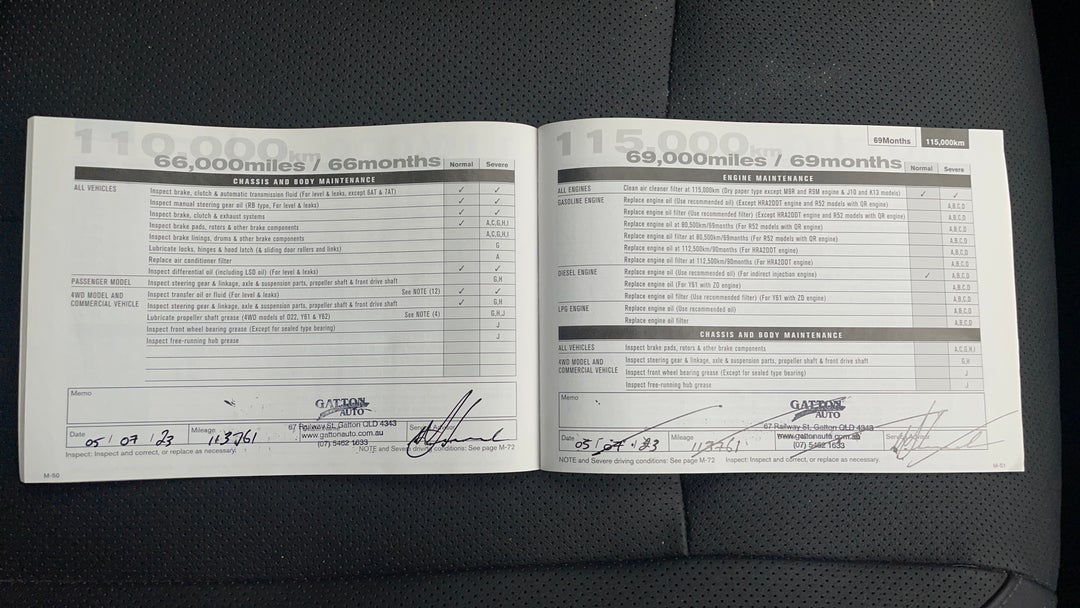 110,000km
66,000miles / 66months
Normal Severe
CHASSIS AND BODY MAINTENANCE
ALL VEHICLES Inspect brake, clutch & automatic transmission fluid (For level & leaks, except 6AT & 7AT) ✓ ✓
Inspect manual steering gear oil (RB type, For level & leaks) ✓ ✓
Inspect brake, clutch & exhaust systems ✓ ✓
Inspect brake pads, rotors & other brake components ✓ A,C,G,H,I
Inspect brake linings, drums & other brake components A,C,G,H,I
Lubricate locks, hinges & hood latch (& sliding door rollers and links) G
Replace air conditioner filter A
Inspect differential oil (including LSD oil) (For level & leaks) ✓ ✓
PASSENGER MODEL Inspect steering gear & linkage, axle & suspension parts, propeller shaft & front drive shaft G,H
4WD MODEL AND COMMERCIAL VEHICLE Inspect transfer oil or fluid (For level & leaks) See NOTE (12) ✓ ✓
Inspect steering gear & linkage, axle & suspension parts, propeller shaft & front drive shaft ✓ G,H
Lubricate propeller shaft grease (4WD models of D22, Y61 & Y62) See NOTE (4) G,H,J
Inspect front wheel bearing grease (Except for sealed type bearing) J
Inspect free-running hub grease J
Memo
GATTON
AUTO
67 Railway St, Gatton QLD 4343
www.gattonauto.com.au
(07) 5462 1633
Date 05 / 07 / 23 Mileage 113761
Inspect: Inspect and correct, or replace as necessary. NOTE and Severe driving conditions: See page M-72
M-50
115,000km
69Months 115,000km
69,000miles / 69months
Normal Severe
ENGINE MAINTENANCE
ALL ENGINES Clean air cleaner filter at 115,000km (Dry paper type except M9R and R9M engine & J10 and K13 models) ✓ ✓
GASOLINE ENGINE Replace engine oil (Use recommended oil) (Except HRA2DDT engine and R52 models with QR engine) A,B,C,D
Replace engine oil filter (Use recommended filter) (Except HRA2DDT engine and R52 models with QR engine) A,B,C,D
Replace engine oil at 80,500km/69months (For R52 models with QR engine) A,B,C,D
Replace engine oil filter at 80,500km/69months (For R52 models with QR engine) A,B,C,D
Replace engine oil at 112,500km/90months (For HRA2DDT engine) A,B,C,D
Replace engine oil filter at 112,500km/90months (For HRA2DDT engine) A,B,C,D
DIESEL ENGINE Replace engine oil (Use recommended oil) (For indirect injection engine) ✓ A,B,C,D
Replace engine oil (Use recommended oil) (For Y61 with ZD engine) A,B,C,D
Replace engine oil filter (Use recommended filter) (For Y61 with ZD engine) A,B,C,D
LPG ENGINE Replace engine oil (Use recommended oil) A,B,C,D
Replace engine oil filter A,B,C,D
CHASSIS AND BODY MAINTENANCE
ALL VEHICLES Inspect brake pads, rotors & other brake components A,C,G,H,I
4WD MODEL AND COMMERCIAL VEHICLE Inspect steering gear & linkage, axle & suspension parts, propeller shaft & front drive shaft G,H
Inspect front wheel bearing grease (Except for sealed type bearing) J
Inspect free-running hub grease J
Memo
GATTON
AUTO
67 Railway St, Gatton QLD 4343
www.gattonauto.com.au
(07) 5462 1633
Date 05 / 07 / 23 Mileage 113761
NOTE and Severe driving conditions: See page M-72 Inspect: Inspect and correct, or replace as necessary.
M-51